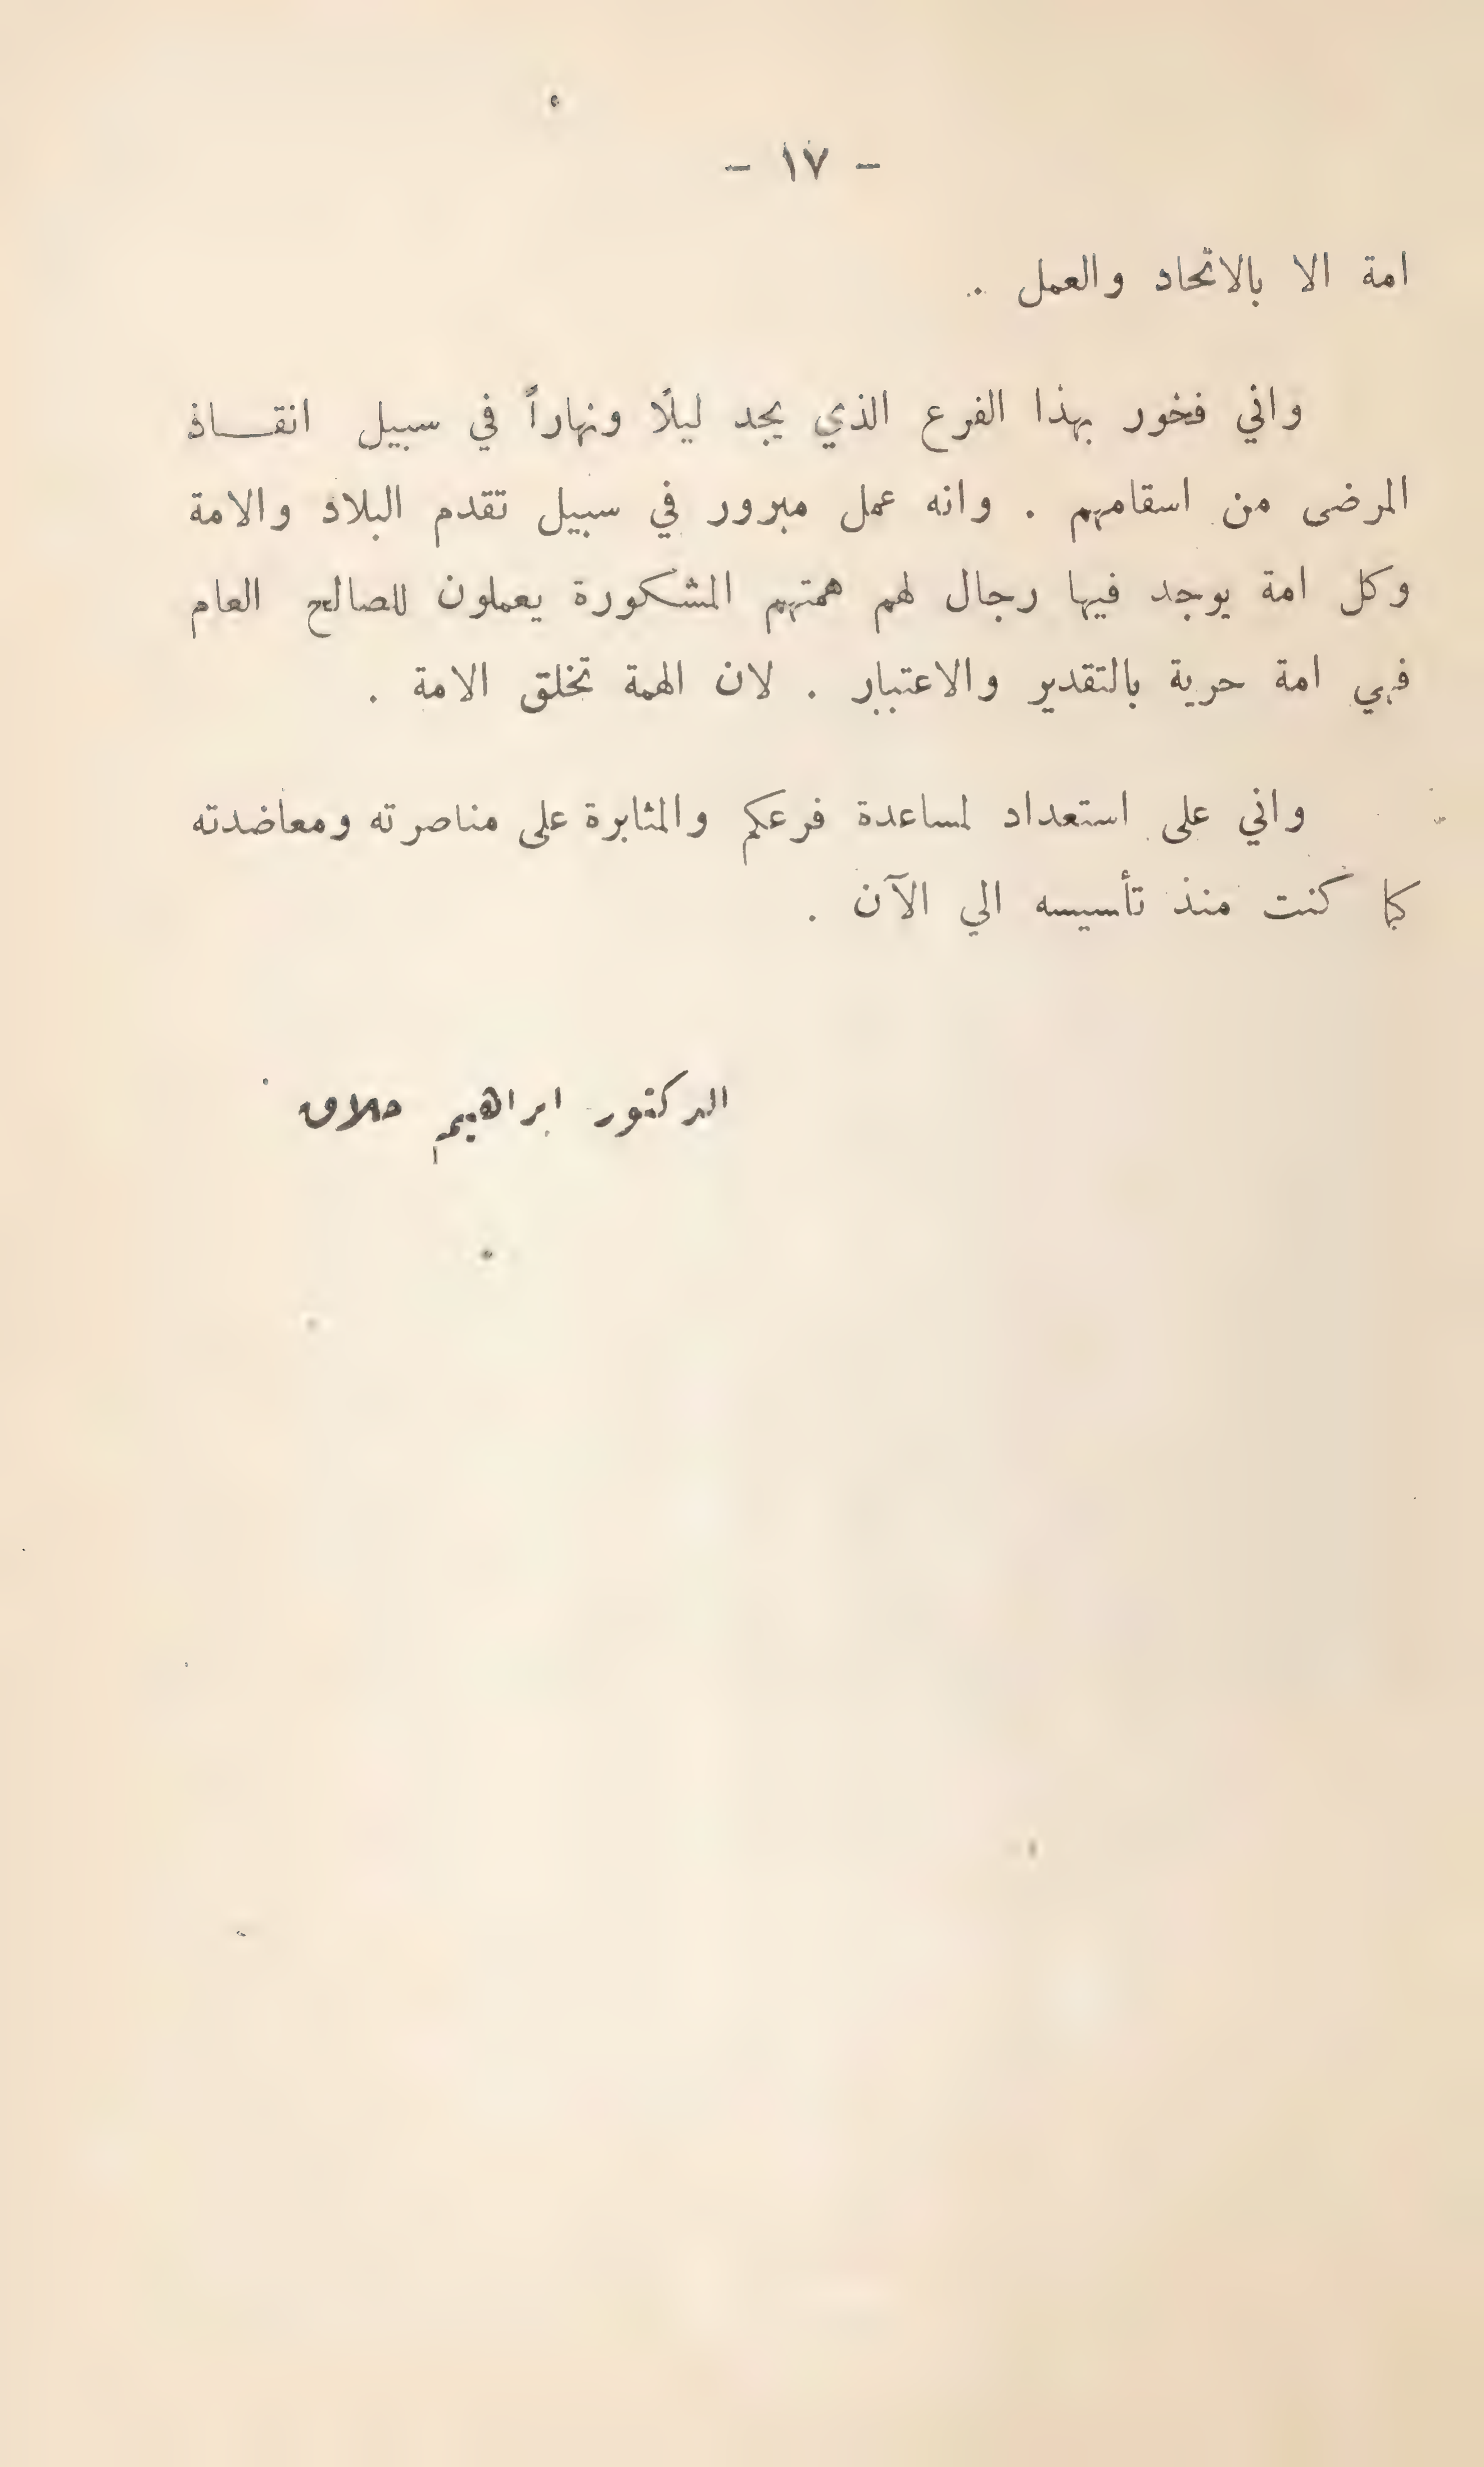 - ١٧ -
امة الا بالاتحاد والعمل ..
واني فخور بهذا الفرع الذي يجد ليلًا ونهاراً في سبيل انقـــاذ
المرضى من اسقامهم . وانه عمل مبرور في سبيل تقدم البلاد والامة
وكل امة يوجد فيها رجال لهم همتهم المشكورة يعملون للصالح العام
فهي امة حرية بالتقدير والاعتبار . لان الهمة تخلق الامة .
واني على استعداد لمساعدة فرعكم والمثابرة على مناصرته ومعاضدته
كما كنت منذ تأسيسه الي الآن .
الدكتور ابراهيم حلاق